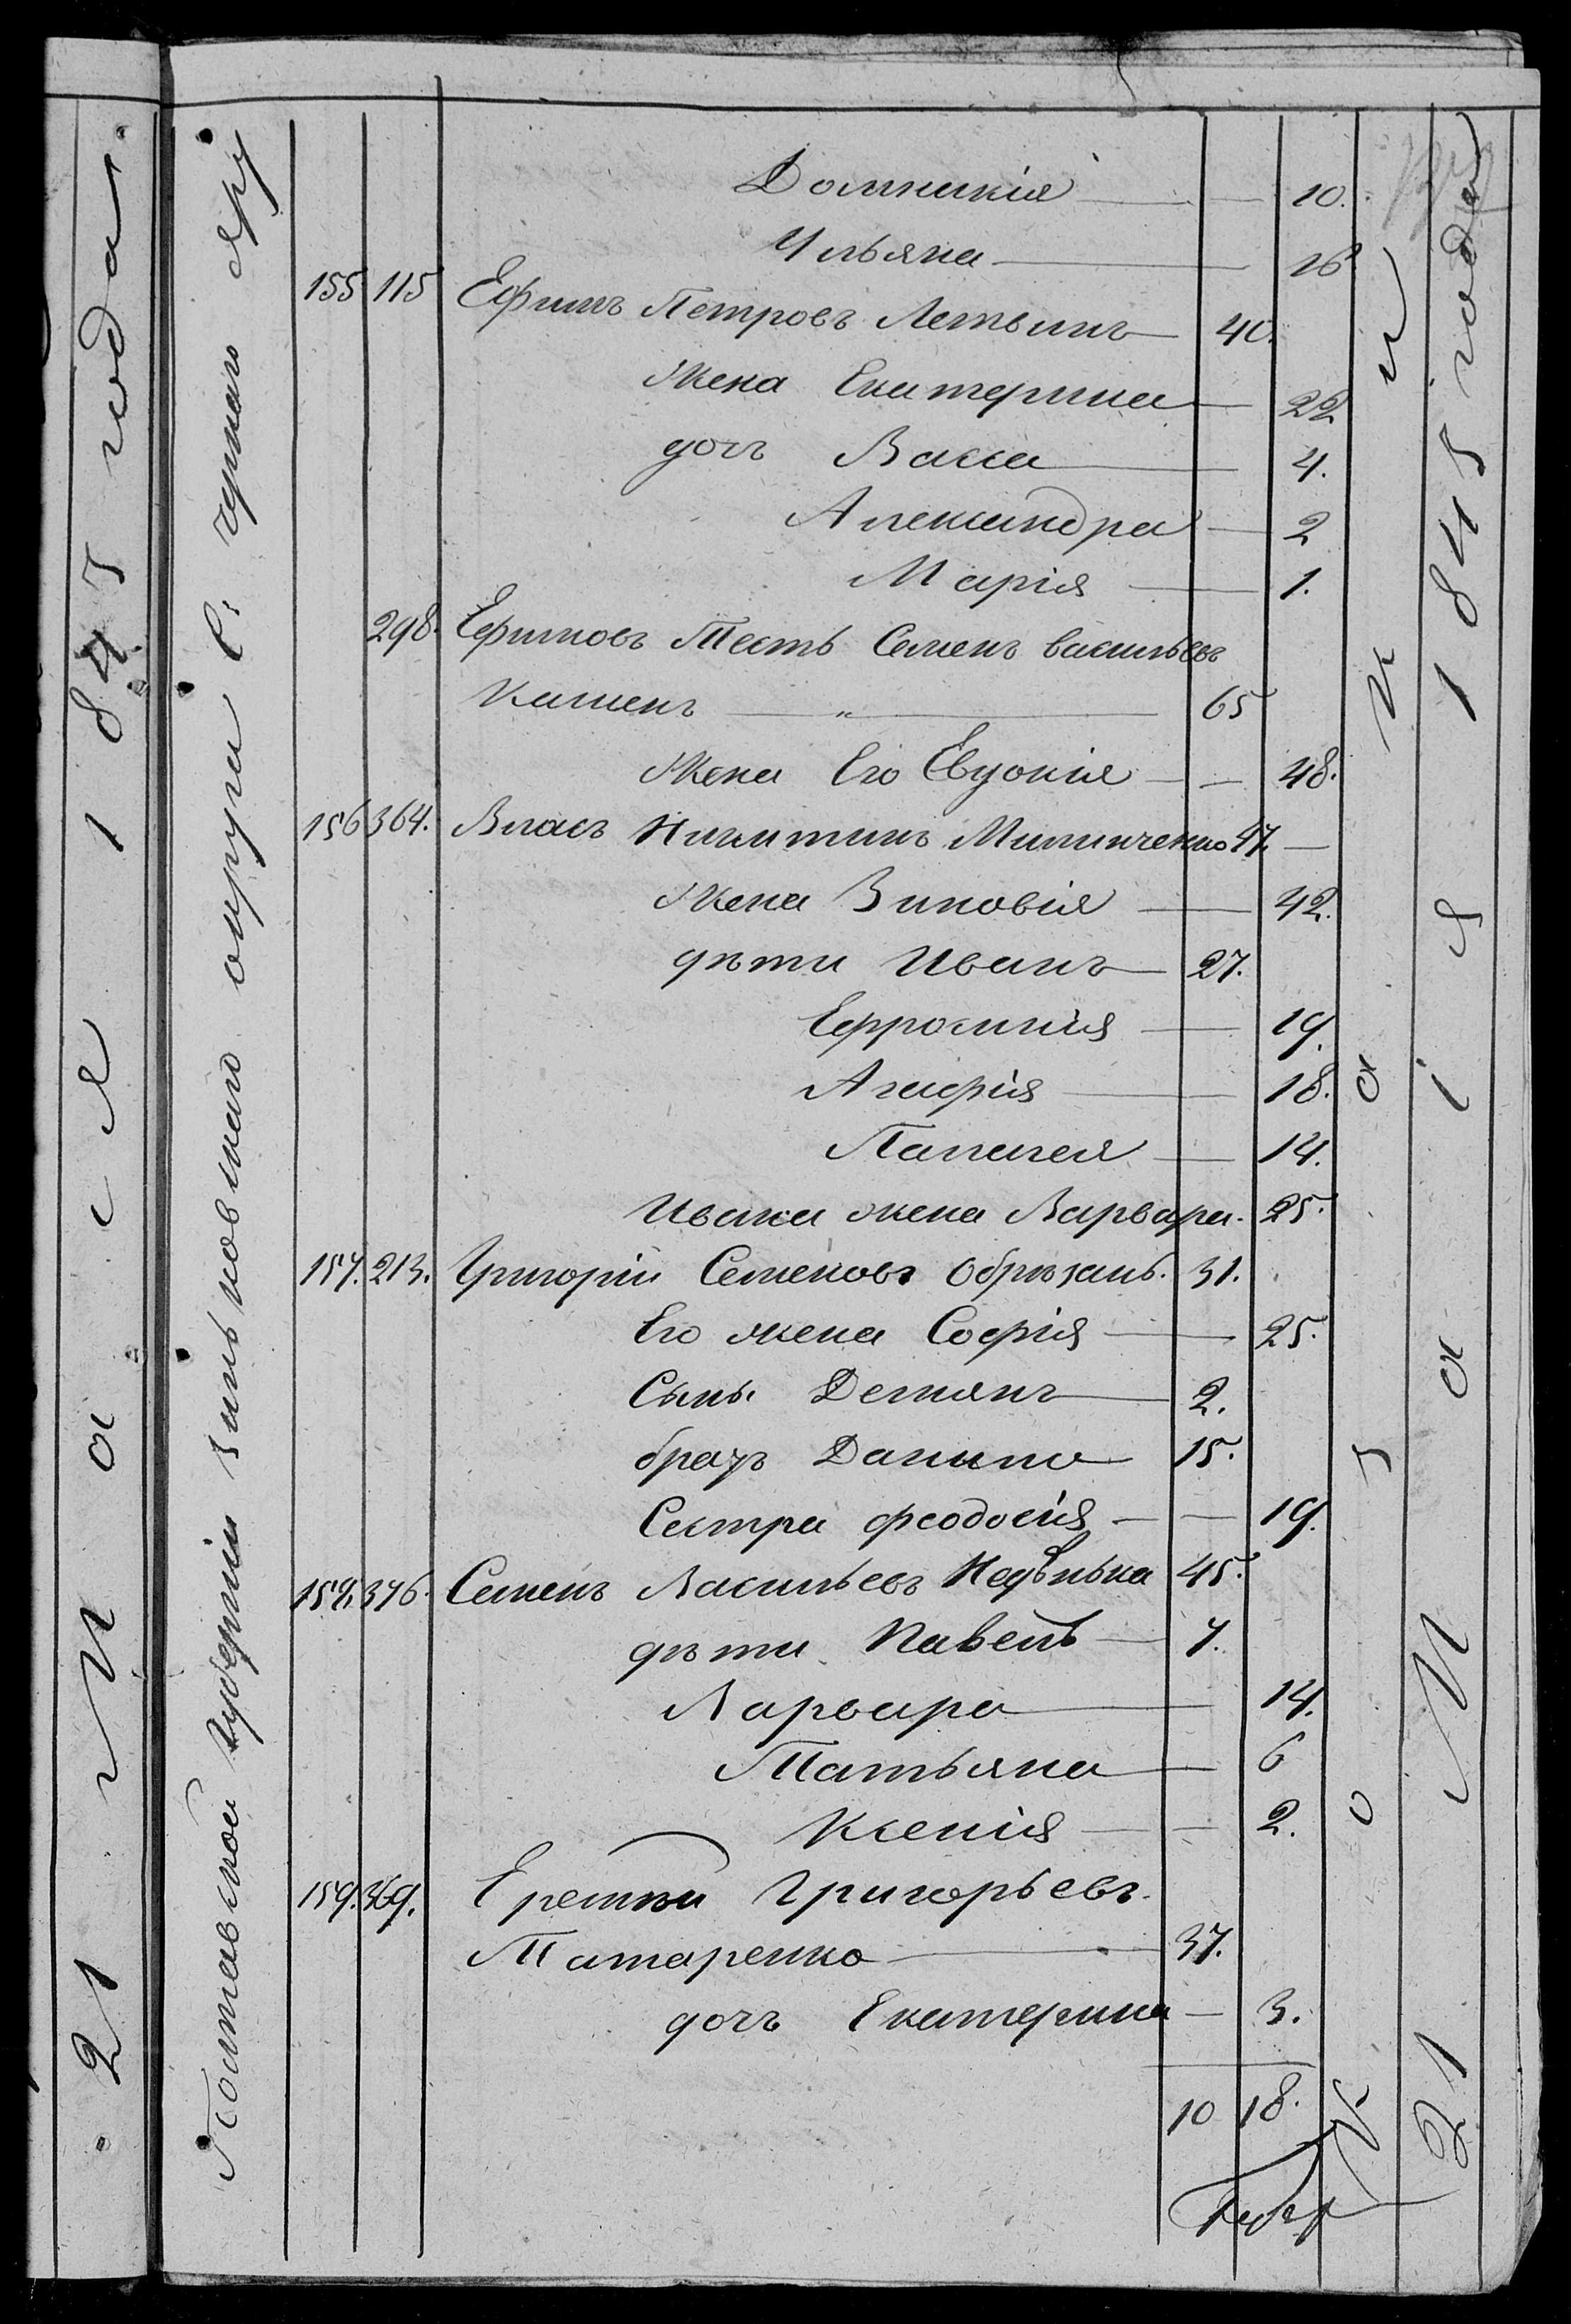 21 Маія 1845 года.
Полтавской губерніи Зиньковскаго округа С.
Домникія — 10.
Ульяна — 16
155 115 Ефимъ Петровъ Летвинъ — 40.
Жена Екатерина — 22
дочъ Васса — 4.
Александра — 2
Марія — 1.
298. Ефимовъ Тесть Семенъ Васильевъ
Кашенъ — " — 65
Жена Его Евдокія — 48.
156 364. Власъ Никитинъ Милинченко 47. —
Жена Зиновія — 42.
дѣти Иванъ — 27.
Ефросинія — 19.
Агафія — 18.
Палагея — 14.
Ивана жена Варвара. 25.
157. 213. Григорій Семеновъ Обрѣзанъ. 31.
Его жена Софія — 25.
Сынъ Демянъ — 2.
братъ Данило — 15.
Сестра Феодосія — 19.
158. 376. Семенъ Васильевъ Недѣлька 45.
дѣти Павелъ — 7.
Варвара — 14.
Татьяна — 6
Ксенія — 2.
159. 369. Еремѣй Григорьевъ
Татаренко — 37.
дочъ Екатерина — 3.
10 18.
Казаки
21 Маія 1845 года